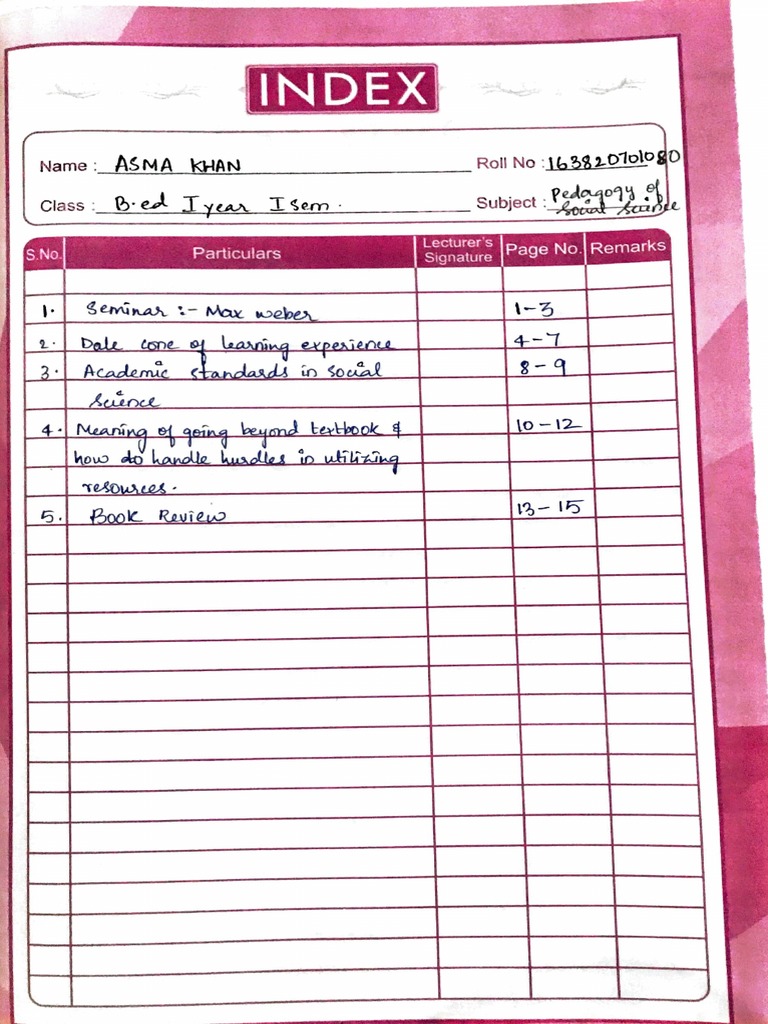 INDEX
Name : ASMA KHAN Roll No : 163820701080
Class : B.ed I year I sem . Subject : Pedagogy of
Social Science
S.No. Particulars Lecturer's Signature Page No. Remarks
1. Seminar :- Max weber 1-3
2. Dale cone of learning experience 4-7
3. Academic standards in social 8-9
science
4. Meaning of going beyond textbook & 10-12
how do handle hurdles in utilizing
resources.
5. Book Review 13-15